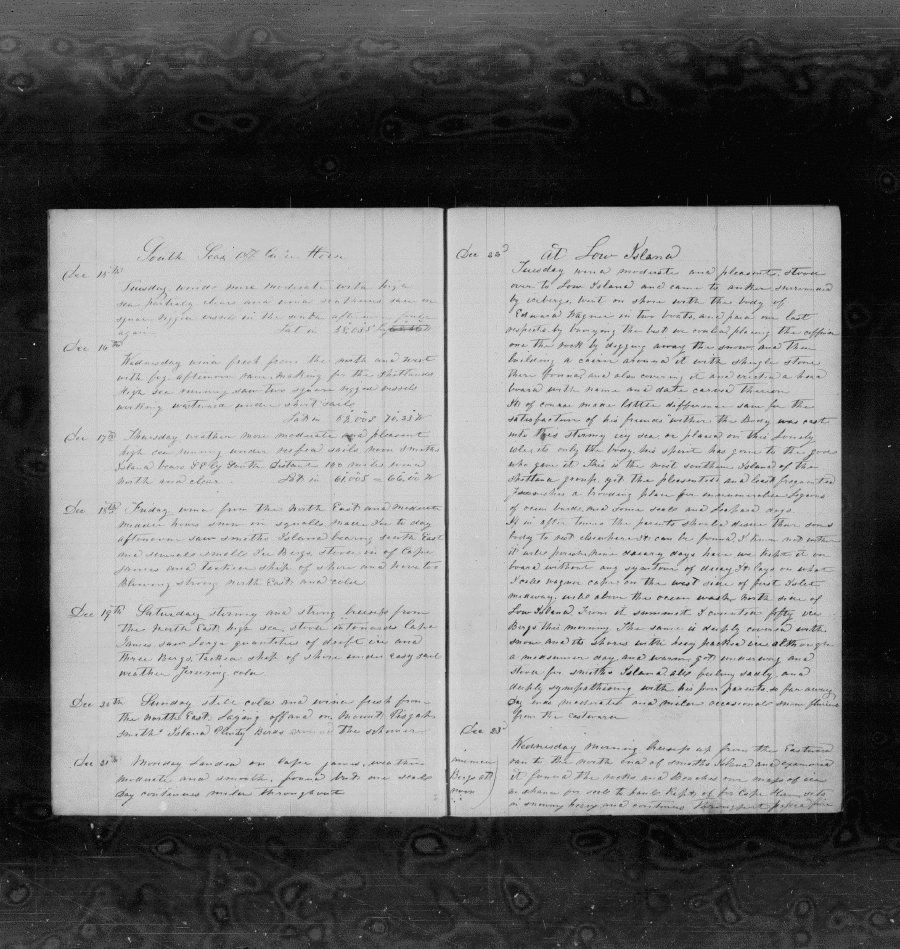 South Seas off Cape Horn
Dec 15th
Tuesday winds more moderate with high
sea partialy clear and wind southerns saw one
square rigged vessel in the south afternoon
again Lat in 58,03S
Dec 16th
Wednesday wind fresh from the north and west
with fog afternoon rain making for the Shetlands
high sea running saw two square rigged vessels
working westward under short sails
Lat in 60,00S 70,23 W
Dec 17th Thursday weather more moderate and pleasent
high sea running under reefed sails noon Smiths
Island bears SE by South Distant 100 miles wind
north and clear. Lat in 61,00S = 66,00 W
Dec 18th Friday wind from the North East and moderate
mid hours snow in squalls made Ice to day
afternoon saw Smiths Island bearing south East
and severals smalls Ice Bergs, stood in of Cape
James and tacked ship of shore and hove too
Blowing strong north East and cold
Dec 19th Saturday stormy and strong breezes from
the North East, high sea, stood towards Cape
James, saw large quanteties of drift ice and
three Bergs, tacked ship of shore under easy sail
weather freezing cold
Dec 20th Sunday still cold and wind fresh from
the North East, Laying off and on Mount Pisgah
Smiths Island Plenty Bergs around the schooner
Dec 21st Monday Landed on Cape James, weather
moderate and smooth, found but one seals
day continues milder throughout
Dec 22d at Low Island
Tuesday wind moderate and pleasents, stood
over to Low Island and came to anker surrounded
by icebergs, went on shore with the body of
Edward Wagner in two boats, and paid our last
respects by burying the best we could placing the coffin
on the rock by digging away the snow, and then
building a cairn around it with shingle stone
there found and also covering it and erected a head
board with name and date carved theron
It of course made little difference save for the
satisfaction of his friends wither the Body was cast
into this stormy icy sea or placed on this lonely
isle, its only the body, his spirit has gone to the giver
who gave it This is the most southern Island of the
Shetland group, yet the pleasentest and least frequented
a brooding place for innumerable Legions
of ocean birds, and some seals and Leopard dogs.
If in after times the parents should desire their sons
body to rest elsewhere it can be found. I knew not wither
it would perish, nine dasary days have we kept it on
board without any symtoms of decay. It Lays on what
I calld Wagner cape on the west side of first Islet
midway, well above the ocean wash, north side of
Low Island. From it summet I counted fifty ice
Bergs this morning. The land is deeply covered with
snow and the shores with heavy packed ice although
a midsummer day and warm, got underway and
stood for Smiths Island all feeling sadly and
deeply sympathising with his poor parents so far away.
Day ends moderate and milder occasional snow
from the eastward
Dec 23d
Wednesday morning breezed up from the Eastward
ran to the north end of Smiths Island and examined
it found the rocks and Beaches one mass of ice
no chance for seals to haul. Kept of for Cape
in snowing heavy and continues
Bergs all
now